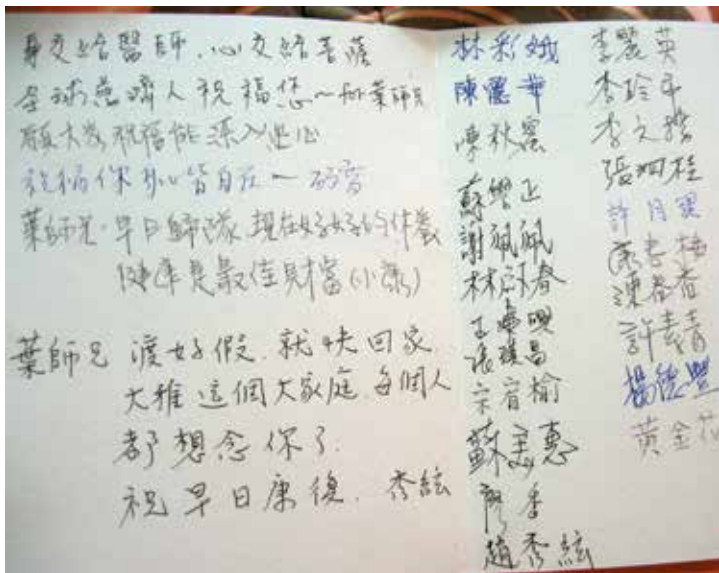 身交給醫師．心交給菩薩
全球慈濟人祝福您～ 葉師兄
願大家祝福能深入您心
祝福你身心皆自在～
葉師兄．早日歸隊 現在好好的休養
健康是最佳財富(小康)
葉師兄 渡好假．就快回家．
大雅這個大家庭．每個人
都想念你了．
祝早日康復． 秀絃
林彩娥
陳麗華
陳秋
蘇
謝珮珮
林 春
王
張 昌
宋宥榆
蘇美惠
廖季
趙秀絃
李麗英
李玲
李文
張四桂
許月
陳春香
許素青
楊德豐
黃金花